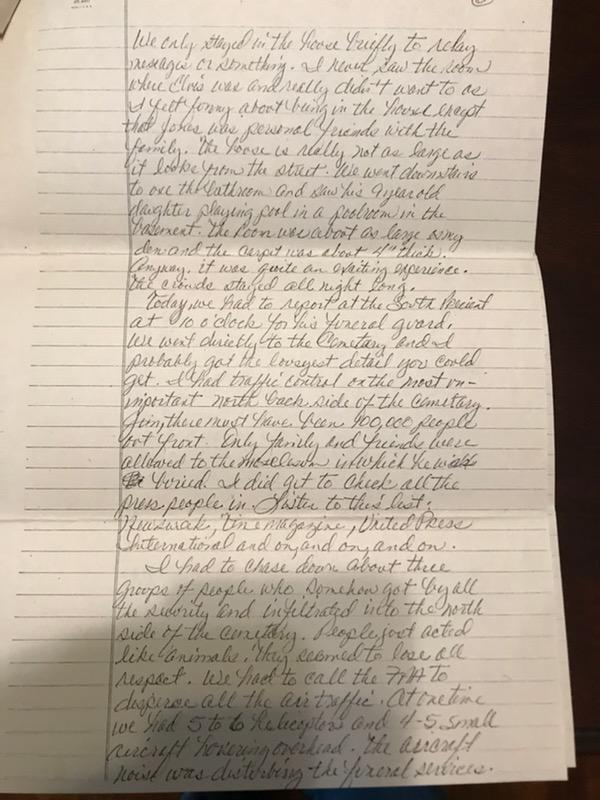 We only stayed in the house briefly to relay
messages or something. I never saw the room
where Elvis was and really didn't want to as
I felt funny about being in the house except
that Jones was personal friends with the
family. The house is really not as large as
it looks from the street. We went downstairs
to use the bathroom and saw his 9 year old
daughter playing pool in a poolroom in the
basement. The room was about as large as my
den and the carpit was about 4" thick.
Anyway, it was quite an exiting experience.
The crowds stayed all night long.
Today, we had to report at the South Precient
at 10 o'clock for his funeral guard.
We went directly to the Cemetary and I
probably got the lousyest detail you could
get. I had traffic control on the most un-
important north back side of the cemetary.
Jim, there must have been 100,000 people
out front. Only family and friends were
allowed to the in which he was
buried. I did get to check all the
press people in. Listen to this list:
Newsweak, Time magazine, United Press
International and on, and on, and on.
I had to chase down about three
groups of people who somehow got by all
the security and infiltrated into the north
side of the cemetary. People just acted
like animals. They seemed to lose all
respect. We had to call the FAA to
disperse all the air traffic. At one time
we had 5 to 6 helecopters and 4-5 small
aircraft hovering overhead. The aircraft
noise was disturbing the funeral services.